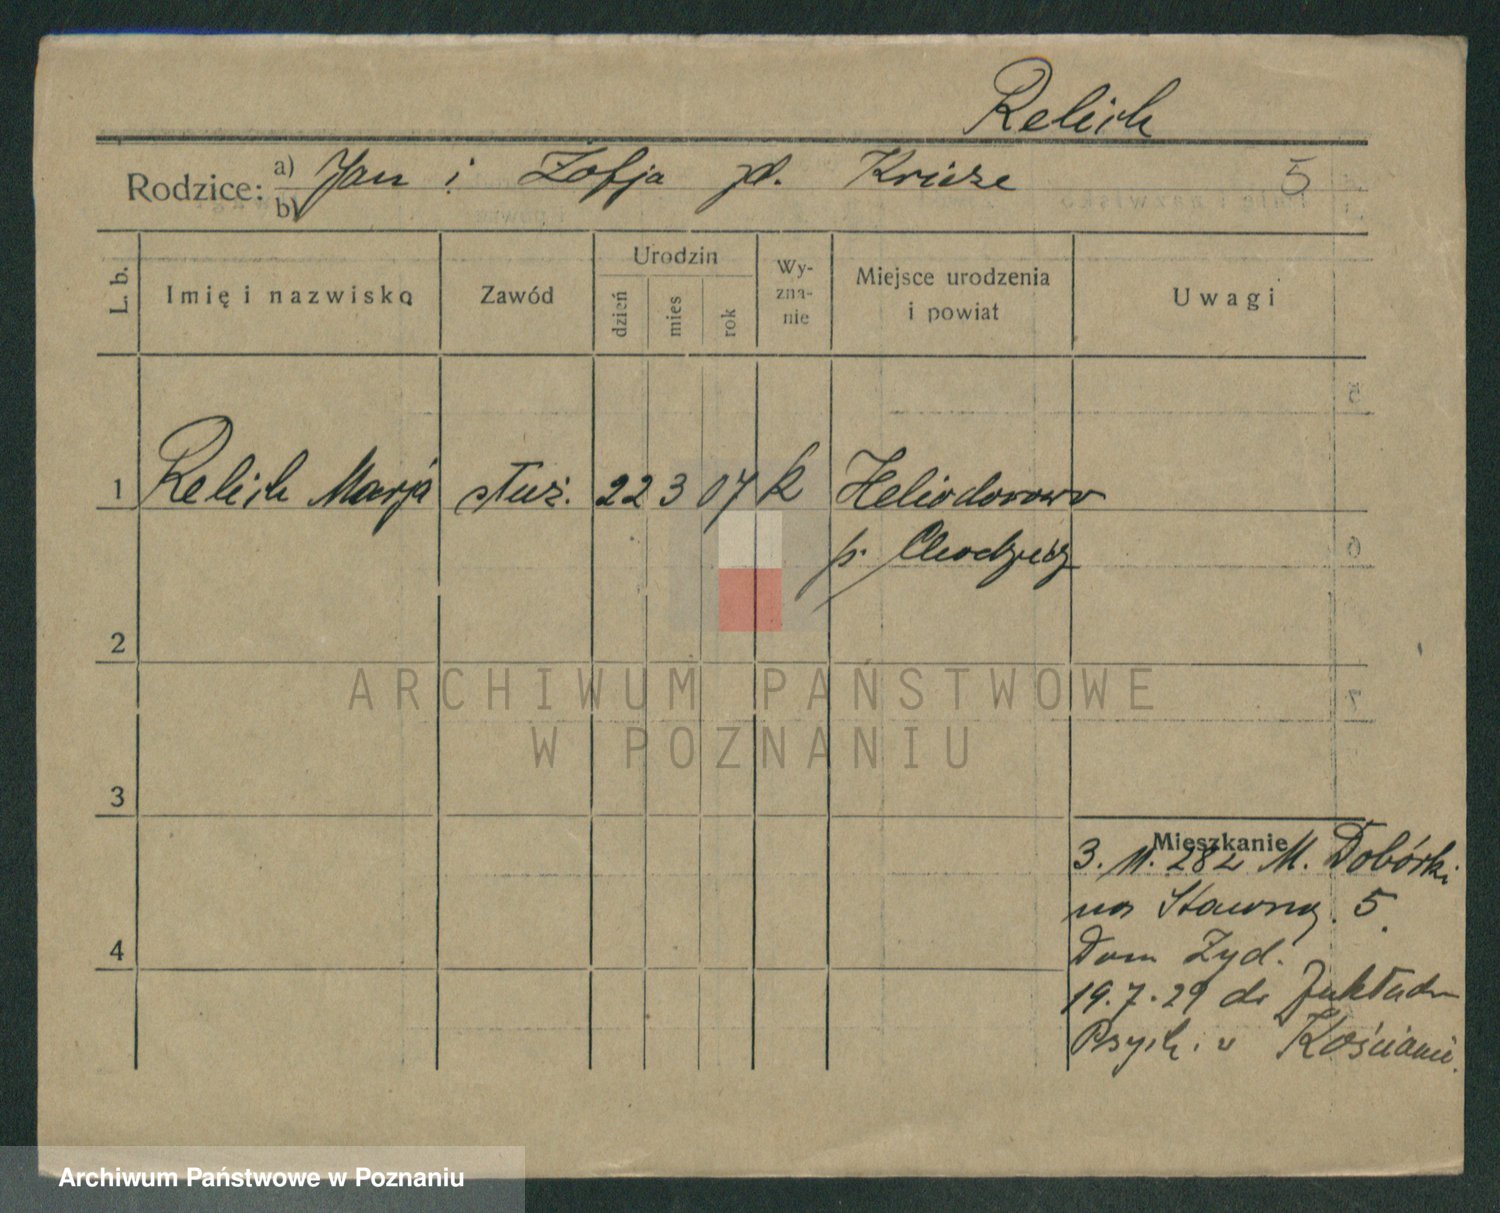 Relich
Rodzice: a) Jan i Zofja zd. Kriese 5
b)
L. b. Imię i nazwisko Zawód Urodzin dzień mies rok Wyznanie Miejsce urodzenia i powiat Uwagi
1 Relich Marja służ. 22 3 07 k Heliodorowo
p. Chodzież
2
ARCHIWUM PAŃSTWOWE
W POZNANIU
3
Mieszkanie
3. 11. 282 M. Dobórki
na Stawną. 5
4
Dom Żyd.
19.7.29 do Zakładu
Psych. w Kościanie.
Archiwum Państwowe w Poznaniu